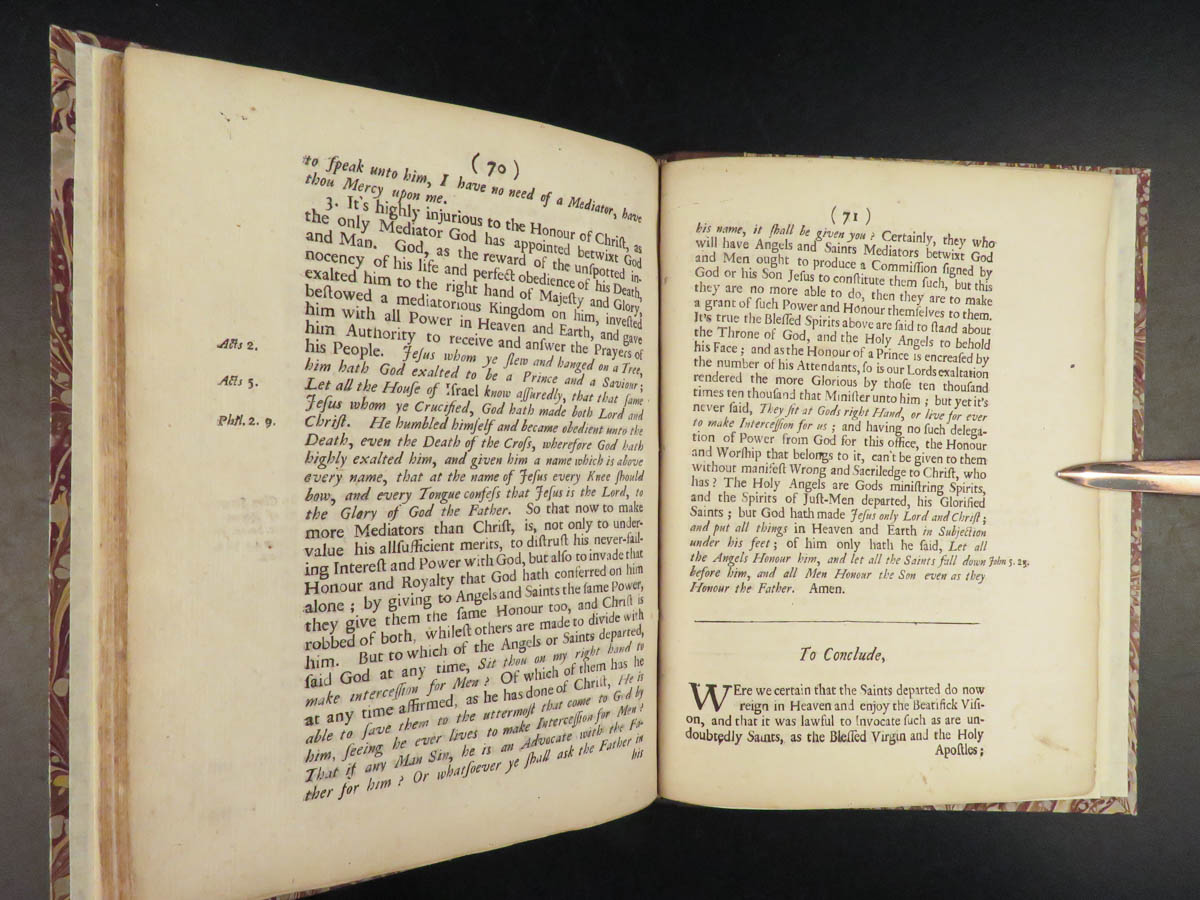 (70)
to ſpeak unto him, I have no need of a Mediator, have
thou Mercy upon me.
3. It's highly injurious to the Honour of Chriſt, as
the only Mediator God has appointed betwixt God
and Man. God, as the reward of the unſpotted in-
nocency of his life and perfect obedience of his Death,
exalted him to the right hand of Majeſty and Glory,
beſtowed a mediatorious Kingdom on him, inveſted
him with all Power in Heaven and Earth, and gave
him Authority to receive and anſwer the Prayers of
his People. Jeſus whom ye ſlew and hanged on a Tree,
Acts 2.
him hath God exalted to be a Prince and a Saviour;
Acts 5.
Let all the Houſe of Iſrael know aſſuredly, that that ſame
Jeſus whom ye Crucified, God hath made both Lord and
Phil. 2. 9.
Chriſt. He humbled himſelf and became obedient unto the
Death, even the Death of the Croſs, wherefore God hath
highly exalted him, and given him a name which is above
every name, that at the name of Jeſus every Knee ſhould
bow, and every Tongue confeſs that Jeſus is the Lord, to
the Glory of God the Father. So that now to make
more Mediators than Chriſt, is, not only to under-
value his allſufficient merits, to diſtruſt his never-fail-
ing Intereſt and Power with God, but alſo to invade that
Honour and Royalty that God hath conferred on him
alone; by giving to Angels and Saints the ſame Power,
they give them the ſame Honour too, and Chriſt is
robbed of both, whileſt others are made to divide with
him. But to which of the Angels or Saints departed,
ſaid God at any time, Sit thou on my right hand to
make interceſſion for Men? Of which of them has he
at any time affirmed, as he has done of Chriſt, He is
able to ſave them to the uttermoſt that come to God by
him, ſeeing he ever lives to make Interceſſion for Men?
That if any Man Sin, he is an Advocate with the Fa-
ther for him? Or whatſoever ye ſhall ask the Father in
his
(71)
his name, it ſhall be given you? Certainly, they who
will have Angels and Saints Mediators betwixt God
and Men ought to produce a Commiſſion ſigned by
God or his Son Jeſus to conſtitute them ſuch, but this
they are no more able to do, then they are to make
a grant of ſuch Power and Honour themſelves to them.
It's true the Bleſſed Spirits above are ſaid to ſtand about
the Throne of God, and the Holy Angels to behold
his Face; and as the Honour of a Prince is encreaſed by
the number of his Attendants, ſo is our Lords exaltation
rendered the more Glorious by thoſe ten thouſand
times ten thouſand that Miniſter unto him; but yet it's
never ſaid, They ſit at Gods right Hand, or live for ever
to make Interceſſion for us; and having no ſuch delega-
tion of Power from God for this office, the Honour
and Worſhip that belongs to it, can't be given to them
without manifeſt Wrong and Sacriledge to Chriſt, who
has? The Holy Angels are Gods miniſtring Spirits,
and the Spirits of Juſt-Men departed, his Glorified
Saints; but God hath made Jeſus only Lord and Chriſt;
and put all things in Heaven and Earth in Subjection
under his feet; of him only hath he ſaid, Let all
the Angels Honour him, and let all the Saints fall down
John 5. 23.
before him, and all Men Honour the Son even as they
Honour the Father. Amen.
To Conclude,
WEre we certain that the Saints departed do now
reign in Heaven and enjoy the Beatifick Viſi-
on, and that it was lawful to Invocate ſuch as are un-
doubtedly Saints, as the Bleſſed Virgin and the Holy
Apoſtles;